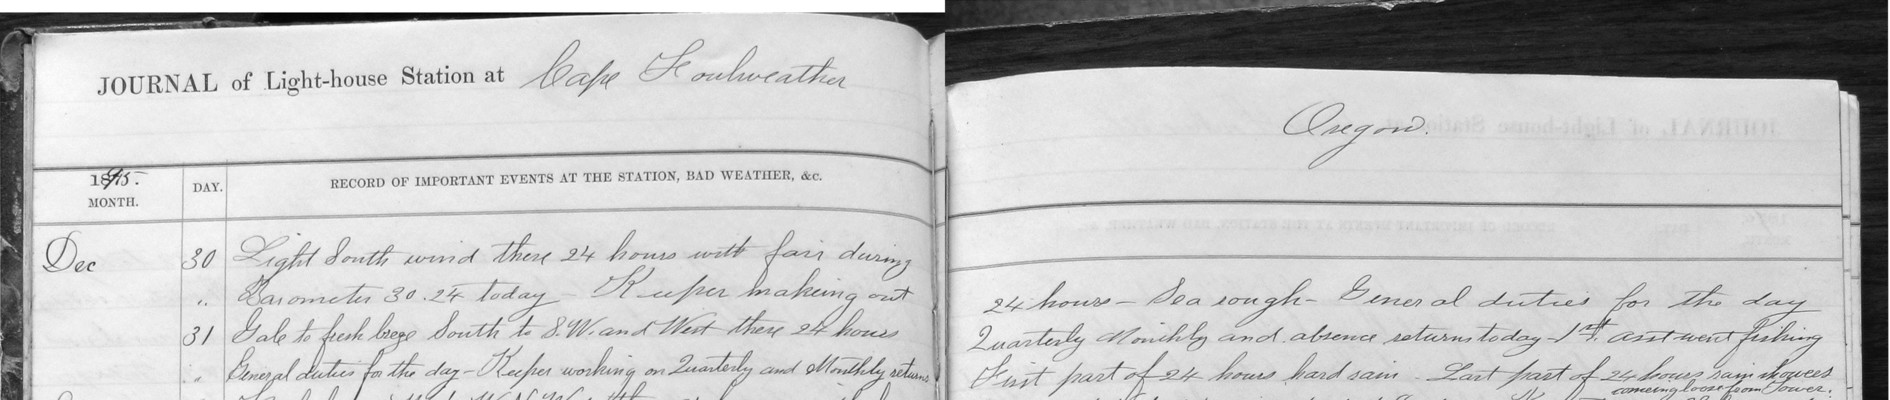 JOURNAL of Light-house Station at Cape Foulweather
Oregon.
1895.
MONTH.
DAY.
RECORD OF IMPORTANT EVENTS AT THE STATION, BAD WEATHER, &c.
Dec 30 Light South wind these 24 hours with fair during
24 hours - Sea rough - General duties for the day
" Barometer 30.24 today - Keeper makeing out
Quarterly Monthly and absence returns today - 1st. asst went fishing
31 Gale to fresh breze South to S.W. and West these 24 hours
First part of 24 hours hard rain - Last part of 24 hours rain showers
" General duties for the day - Keeper working on Quarterly and Monthly returns
comeing loose from Tower.